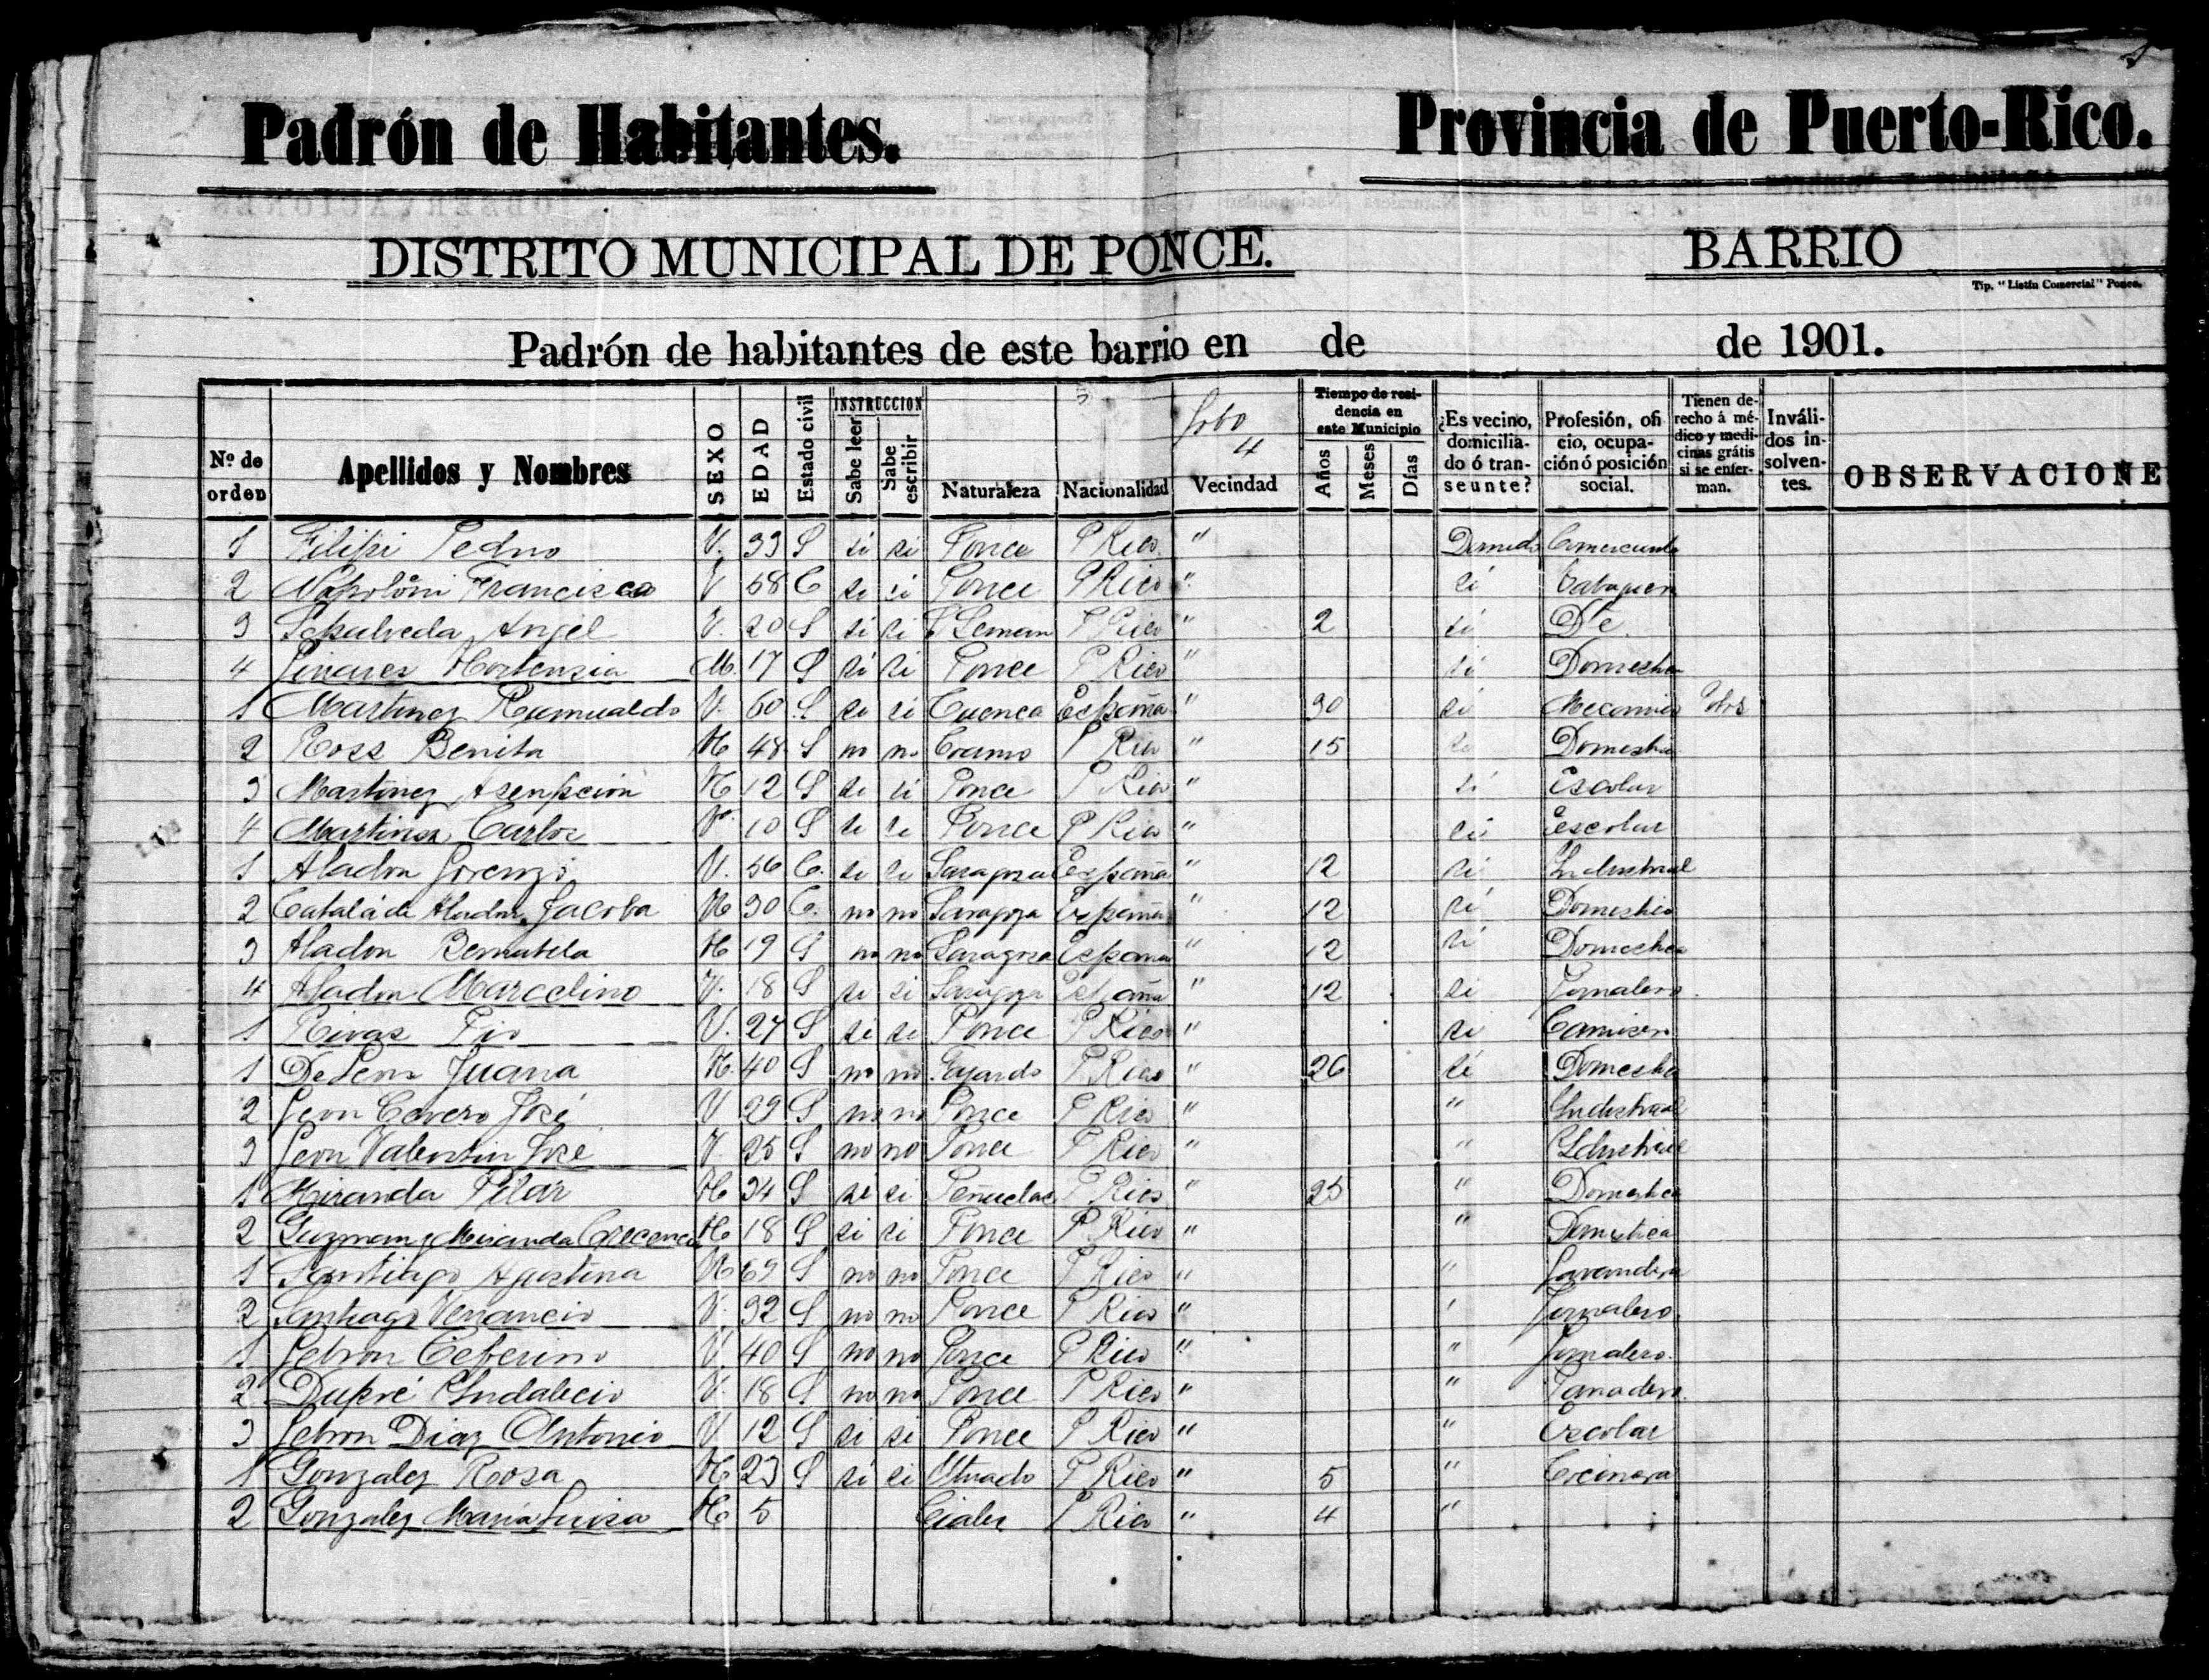 Padrón de Habitantes. Provincia de Puerto-Rico.
DISTRITO MUNICIPAL DE PONCE. BARRIO
Tip. "Listín Comercial" Ponce.
Padrón de habitantes de este barrio en de de 1901.
Nº de orden Apellidos y Nombres SEXO EDAD Estado civil INSTRUCCION Sabe leer Sabe escribir Naturaleza Nacionalidad Vecindad Tiempo de residencia en este Municipio Años Meses Días ¿Es vecino, domiciliado ó transeunte? Profesión, oficio, ocupación ó posición social. Tienen derecho á médico y medicinas grátis si se enferman. Inválidos insolventes. OBSERVACIONE
4
1 Filipi Pedro V. 33 S si si Ponce P Rico " Comerciante
2 Napoloni Francisco V 58 C si si Ponce P Rico " si
3 Sepulveda Angel V. 20 S si si P Rico " 2 si
4 Linares Hortensia M. 17 S si si Ponce P Rico " si Domestica
1 Martinez Rumualdo V. 60 S si si Cuenca España " 30 si Mecanico
2 Ross Benita H 48 S no no Coamo P Rico " 15 si Domestica
3 Martinez Asenpcion H 12 S si si Ponce P Rico " si Escolar
4 Martinez Carlos V. 10 S si si Ponce P Rico " si escolar
1 Aladon Lorenzo V. 56 C. si si Saragosa España " 12 si Industrial
2 Catalá de Aladon Jacoba H 30 C. no no Saragoza España " 12 si Domestica
3 Aladon Bernabela H 19 S no no Saragosa España " 12 si Domestica
4 Aladon Marcelino V. 18 S si si Saragoza España " 12 si Jornalero
1 Rivas Pio V. 27 S si si Ponce P Rico " si
1 DeLeon Juana H. 40 S no no P Rico " 26 si Domestica
2 Leon Cevero José V 29 S no no Ponce P Rico " " Industrial
3 Leon Valentin José V. 25 S no no Ponce P Rico " " Idustrial
1 Miranda Pilar H 34 S si si Peñuelas P Rico " 25 " Domestica
2 Guzman y Miranda H 18 S si si Ponce P Rico " " Domestica
1 Santiago Agustina H 69 S no no Ponce P Rico " " Lavandera
2 Santiago Venancio V. 32 S no no Ponce P Rico " " Jornalero
1 Lebron Ceferino V. 40 S no no Ponce P Rico " " Jornalero.
2 Dupré Indalecio V. 18 S no no Ponce P Rico " " Panadero
3 Lebron Diaz Antonio V 12 S si si Ponce P Rico " " Escolar
1 Gonzalez Rosa H 23 S si si Utuado P Rico " 5 " Cocinera
2 Gonzalez Maria Luisa H 5 Ciales P Rico " 4 "